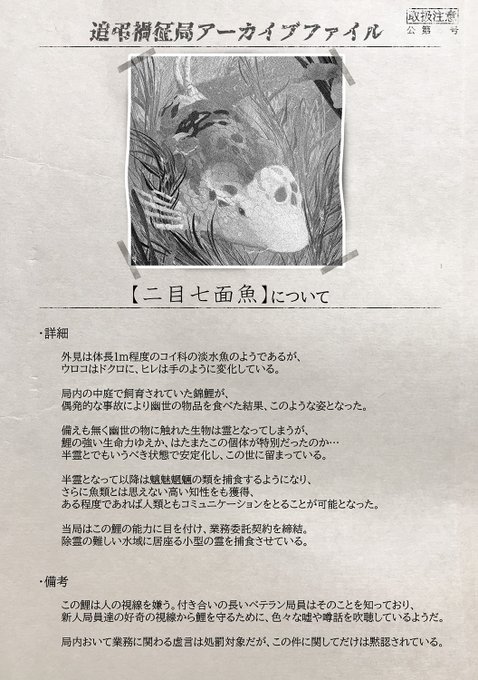 追弔禍征局アーカイブファイル
取扱注意
公 第 号
【二目七面魚】について
・詳細
外見は体長1m程度のコイ科の淡水魚のようであるが、
ウロコはドクロに、ヒレは手のように変化している。
局内の中庭で飼育されていた錦鯉が、
偶発的な事故により幽世の物品を食べた結果、このような姿となった。
備えも無く幽世の物に触れた生物は霊となってしまうが、
鯉の強い生命力ゆえか、はたまたこの個体が特別だったのか…
半霊とでもいうべき状態で安定化し、この世に留まっている。
半霊となって以降は魑魅魍魎の類を捕食するようになり、
さらに魚類とは思えない高い知性をも獲得、
ある程度であれば人類ともコミュニケーションをとることが可能となった。
当局はこの鯉の能力に目を付け、業務委託契約を締結。
除霊の難しい水域に居座る小型の霊を捕食させている。
・備考
この鯉は人の視線を嫌う。付き合いの長いベテラン局員はそのことを知っており、
新人局員達の好奇の視線から鯉を守るために、色々な嘘や噂話を吹聴しているようだ。
局内おいて業務に関わる虚言は処罰対象だが、この件に関してだけは黙認されている。